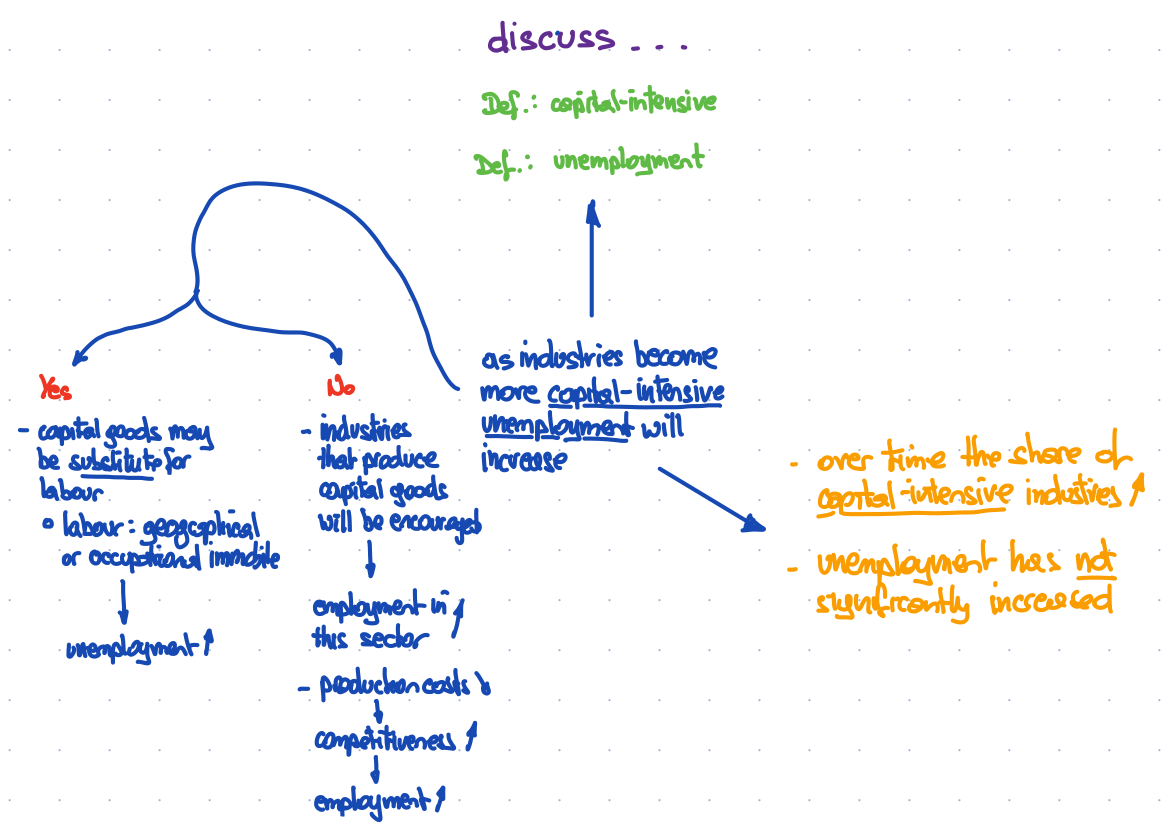 discuss ...
Def.: capital-intensive
Def.: unemployment
as industries become
more capital-intensive
unemployment will
increase
Yes
- capital goods may
be substitute for
labour
labour: geographical
or occupational immobile
unemployment ↑
No
- industries
that produce
capital goods
will be encouraged
employment in ↑
this sector
- production costs ↓
competitiveness ↑
employment ↑
- over time the share of
capital-intensive industries ↑
- unemployment has not
significantly increased